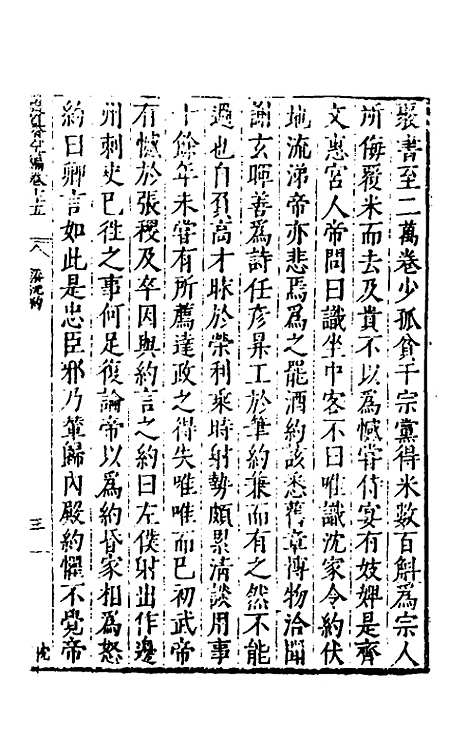 聚書至二萬卷少孤貧干宗黨得米數百斛爲宗人
所侮覆米而去及貴不以爲憾嘗侍宴有妓婢是齊
文惠宮人帝問曰識坐中客不曰唯識沈家令約伏
地流涕帝亦悲焉爲之罷酒約該悉舊章博物洽聞
謝玄暉善爲詩任彦昇工於筆約兼而有之然不能
過也自負高才昧於榮利乘時射勢頗累清談用事
十餘年未嘗有所薦達政之得失唯唯而已初武帝
有憾於張稷及卒因與約言之約曰左僕射出作邊
州刺史已徃之事何足復論帝以爲約昏家相爲怒
約曰卿言如此是忠臣邪乃輦歸内殿約懼不覺帝
卷十五
梁沈約
三